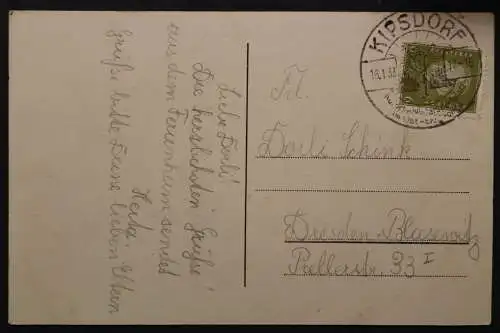 Liebe Dorli!
Die herzlichsten Grüße
aus dem Ferienheim sendet
Herta.
Grüße bitte Deine lieben Eltern
KIPSDORF
Frl.
Dorli Schink
Dresden-Blasewitz
Prellerstr. 33 I